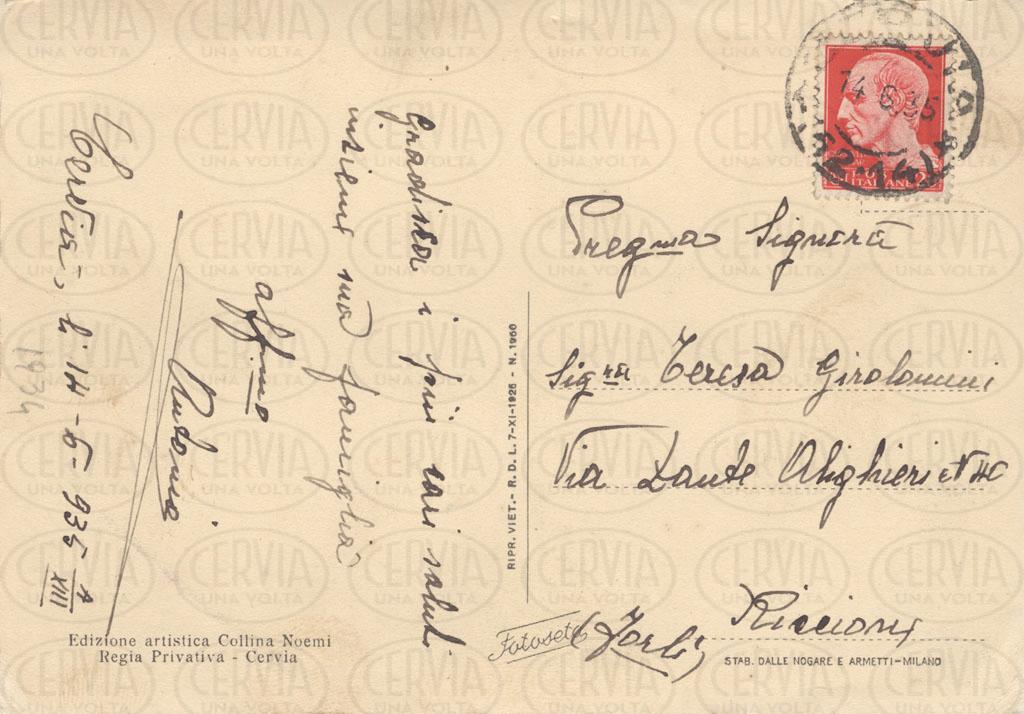 Cervia, li 14-6-935 A XIII
Gradisca i più cari saluti
insieme sua famiglia
aff.mo
1934
Preg.ma Signora
Sig.ra Teresa Girolomini
Via Dante Alighieri N
Riccione
(Forlì)
14 6 35
Fotoseta
RIPR. VIET. - R. D. L. 7-XI-1925 - N. 1950
Edizione artistica Collina Noemi
Regia Privativa - Cervia
STAB. DALLE NOGARE E ARMETTI-MILANO
CERVIA
UNA VOLTA